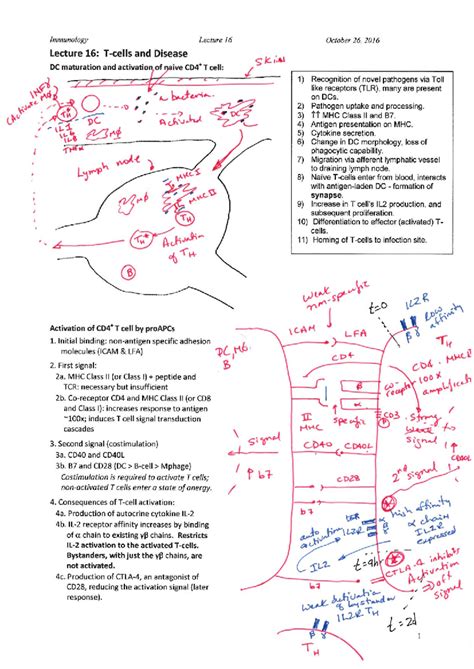 Immunology
Lecture 16
October 26, 2016
Lecture 16: T-cells and Disease
DC maturation and activation of naive CD4+ T cell:
Skin
bacteria
DC
Activated
DC
IL2
TH
Lymph node
MØ
MHC I
MHC II
TH
TH
Activation
of TH
B
1) Recognition of novel pathogens via Toll
like receptors (TLR), many are present
on DCs.
2) Pathogen uptake and processing.
3) ↑↑ MHC Class II and B7.
4) Antigen presentation on MHC.
5) Cytokine secretion.
6) Change in DC morphology, loss of
phagocytic capability.
7) Migration via afferent lymphatic vessel
to draining lymph node.
8) Naive T-cells enter from blood, interacts
with antigen-laden DC - formation of
synapse.
9) Increase in T cell's IL2 production, and
subsequent proliferation.
10) Differentiation to effector (activated) T-
cells.
11) Homing of T-cells to infection site.
Activation of CD4+ T cell by proAPCs
1. Initial binding: non-antigen specific adhesion
molecules (ICAM & LFA)
2. First signal:
2a. MHC Class II (or Class I) + peptide and
TCR: necessary but insufficient
2b. Co-receptor CD4 and MHC Class II (or CD8
and Class I): increases response to antigen
~100x; induces T cell signal transduction
cascades
3. Second signal (costimulation)
3a. CD40 and CD40L
3b. B7 and CD28 (DC > B-cell > Mphage)
Costimulation is required to activate T cells;
non-activated T cells enter a state of anergy.
4. Consequences of T-cell activation:
4a. Production of autocrine cytokine IL-2
4b. IL-2 receptor affinity increases by binding
of α chain to existing γβ chains. Restricts
IL-2 activation to the activated T-cells.
Bystanders, with just the γβ chains, are
not activated.
4c. Production of CTLA-4, an antagonist of
CD28, reducing the activation signal (later
response).
weak
non-specific
t=0
IL2R
low
affinity
ICAM
LFA
TH
DC, MØ
B
CD4
co-
receptor
100x
II
MHC
specific
CD3
strong
signal
signal
CD40
CD40L
↑ b7
CD28
2nd signal
b7
auto
activation
IL2R
α
high affinity
α chain
IL2R
expressed
IL2
b7
CTLA-4 inhibits
Activation
off
signal
weak activation
of bystander
IL2R TH
t=2d